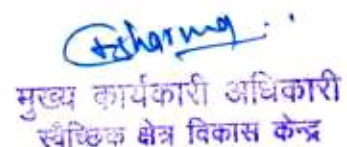 मुख्य कार्यकारी अधिकारी
स्वैच्छिक क्षेत्र विकास केन्द्र